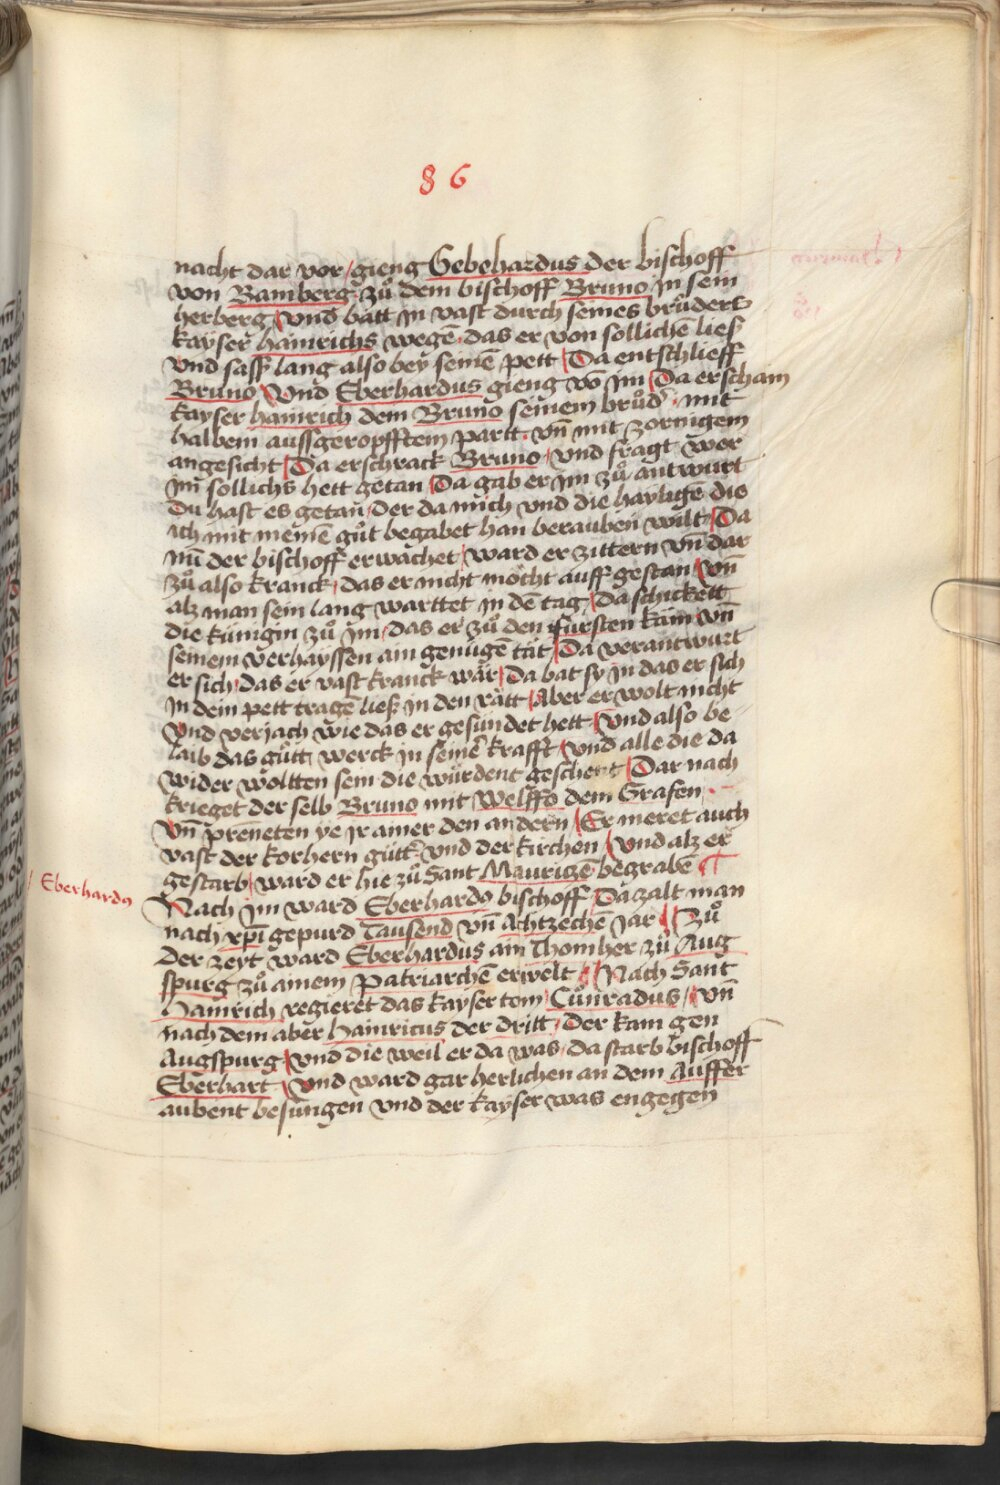 86
nacht dar vor / gieng Gebehardus der bischoff
von Bamberg zů dem bischoff Bruno in sein
herberg / vnd batt in vast durch seines brůders
kayser hainrichs wegē · das er von sollichē ließ
vnd sassz lang also bey seinē pett / Da entschlieff
Bruno / Vnd Eberhardus gieng vō im / Da erscham
kayser hainrich dem Bruno seinem brůd' · mit
halbem aussgeropfftem partt · vn̄ mit zornigem
angesicht / Da erschrack Bruno / vnd fragt wer
im sollichs hett getan / Da gab er im zů antwurt
Du hast es getan / Der da mich vnd die hayligē die
ich mit meinē gůt begabet han berauben wilt / Da
nū der bischoff erwachet / ward er zittern vn̄ dar
zů also kranck / das er nicht möcht auff gestan / vn̄
alz man sein lang warttet in dē tag / Da schickett
die künigin zů im / das er zů den fürsten käm vn̄
seinem verhayssen ain genůgē tät / Da verantwurt
er sich / das er vast kranck wär / Da bat sy in das er sich
in dem pett tragē ließ in den rätt / Aber er wolt nicht
Vnd verjach wie das er gesundet hett / Vnd also be
laib das gůtt werck in seinē krafft / vnd alle die da
wider wöltten sein die würdent geschent / Dar nach
krieget der selb Bruno mit Welffo dem Grafen ·
Vn̄ preneten ye ir ainer den andern / Er meret auch
vast der korhern gůtt · vnd der kirchen / vnd alz er
gestarb / ward er hie zů Sant Maurizē begrabē ¶
/ Eberhardꝰ
Nach im ward Eberhardꝰ bischoff / Da zalt man
nach xpī gepurd Tausend vn̄ Achtzechē Jar / Zů
Der zeyt ward Eberhardus ain Thomher zů Aug
spurg zů ainem patriarchē erwelt / Nach Sant
Hainrich regieret das kaysertom Cůnradus / vn̄
nach dem aber hainricus der dritt / Der kam gen
Augspurg / vnd die weil er da was / da starb bischoff
Eberhart / Vnd ward gar herlichen an dem Auffer
aubent besungen vnd der kayser was engegen